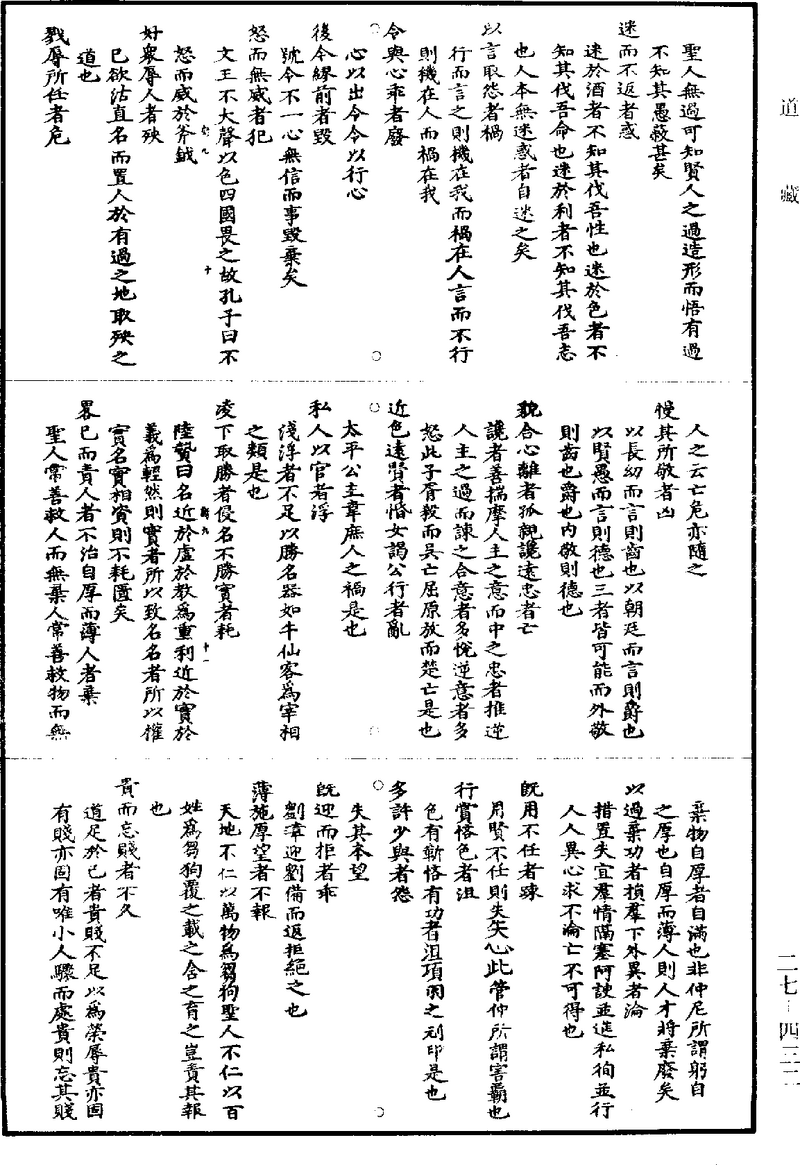 道藏
聖人無過可知賢人之過造形而悟有過
不知其愚蔽甚矣
迷而不返者惑
迷於酒者不知其伐吾性也迷於色者不
知其伐吾命也迷於利者不知其伐吾志
也人本無迷惑者自迷之矣
以言取怨者禍
行而言之則機在我而禍在人言而不行
則機在人而禍在我
令與心乖者廢
心以出令令以行心
後令繆前者毀
號令不一心無信而事毀棄矣
怒而無威者犯
文王不大聲以色四國畏之故孔子曰不
怒而威於斧鉞
好衆辱人者殃
已欲沽直名而置人於有過之地取殃之
道也
戮辱所任者危
人之云亡危亦隨之
慢其所敬者凶
以長幼而言則齒也以朝廷而言則爵也
以賢愚而言則德也三者皆可能而外敬
則齒也爵也内敬則德也
貌合心離者孤親讒遠忠者亡
讒者善揣摩人主之意而中之忠者推逆
人主之過而諫之合意者多悅逆意者多
怒此子胥殺而吳亡屈原放而楚亡是也
近色遠賢者惛女謁公行者亂
太平公主韋庶人之禍是也
私人以官者浮
淺浮者不足以勝名器如牛仙客爲宰相
之類是也
凌下取勝者侵名不勝實者耗
陸贄曰名近於虛於教爲重利近於實於
義爲輕然則實者所以致名名者所以權
實名實相資則不耗匱矣
畧已而責人者不治自厚而薄人者棄
聖人常善救人而無棄人常善救物而無
棄物自厚者自滿也非仲尼所謂躬自
之厚也自厚而薄人則人才將棄廢矣
以過棄功者損羣下外異者淪
措置失宜羣情隔塞阿諛並進私徇並行
人人異心求不淪亡不可得也
旣用不任者踈
用賢不任則失矢心此管仲所謂害霸也
行賞悋色者沮
色有靳悋有功者沮項羽之刓印是也
多許少與者怨
失其本望
旣迎而拒者乖
劉璋迎劉備而返拒絕之也
薄施厚望者不報
天地不仁以萬物爲芻狗聖人不仁以百
姓爲芻狗覆之載之含之育之豈責其報
也
貴而忘賤者不久
道足於已者貴賤不足以爲榮辱貴亦固
有賤亦固有唯小人驟而處貴則忘其賤
二七-四三二